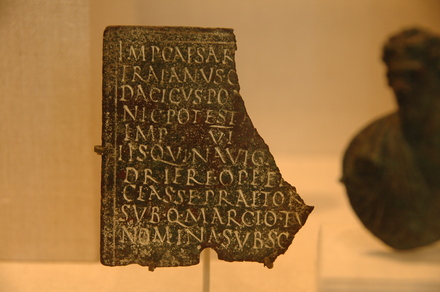 IMP·CAESAR
TRAIANVS·
DACICVS·PO
NIC·POTEST
IMP VI
IISQVI·NAVIG
CLASSE·PRAETOR
SVB·Q·MARCIO·TV
NOMINA·SVBSC